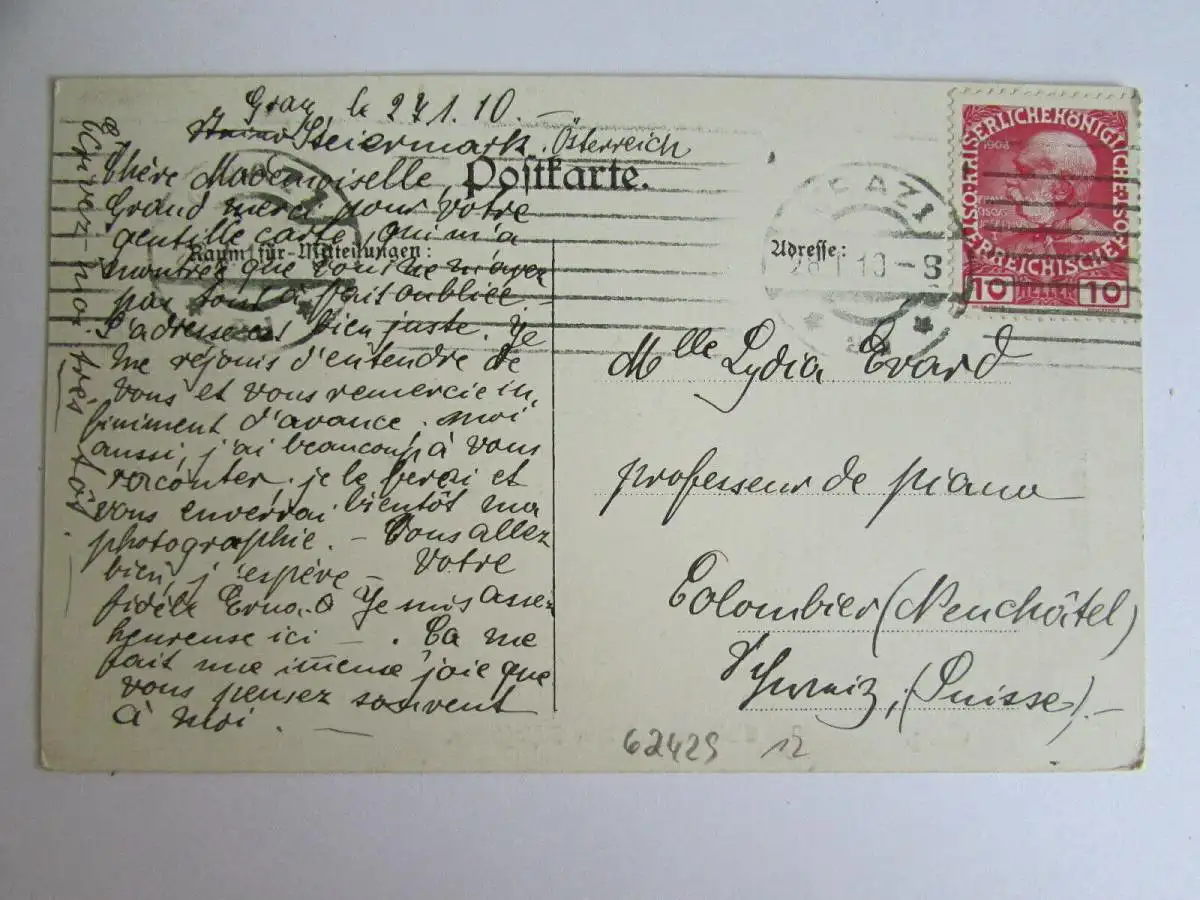 Graz le 27.1.10.
Steiermark, Österreich
Postkarte.
Chère Mademoiselle,
Grand merci pour votre
gentille carte, qui m'a
Raum für Mitteilungen:
montrée que vous ne m'avez
pas tout à fait oubliée.
L'adresse est bien juste. Je
me réjouis d'entendre de
vous et vous remercie in-
finiment d'avance. Moi
aussi, j'ai beaucoup à vous
raconter, je le ferai et
vous enverrai bientôt ma
photographie. – Vous allez
bien, j'espère – Votre
fidèle Erna. Je suis assez
heureuse ici –. Ça me
fait une im̅ense joie que
vous pensez souvent
à moi.
Ecrivez-moi très tôt.
Adresse:
GRAZ 1
28 1 10 - 8
1908
KAISERLICHE KÖNIGLICHE ÖSTERREICHISCHE POST
10 HELLER 10
Mlle Lydia Evard
professeur de piano
Colombier (Neuchâtel)
Schweiz, (Suisse). –
62429 12